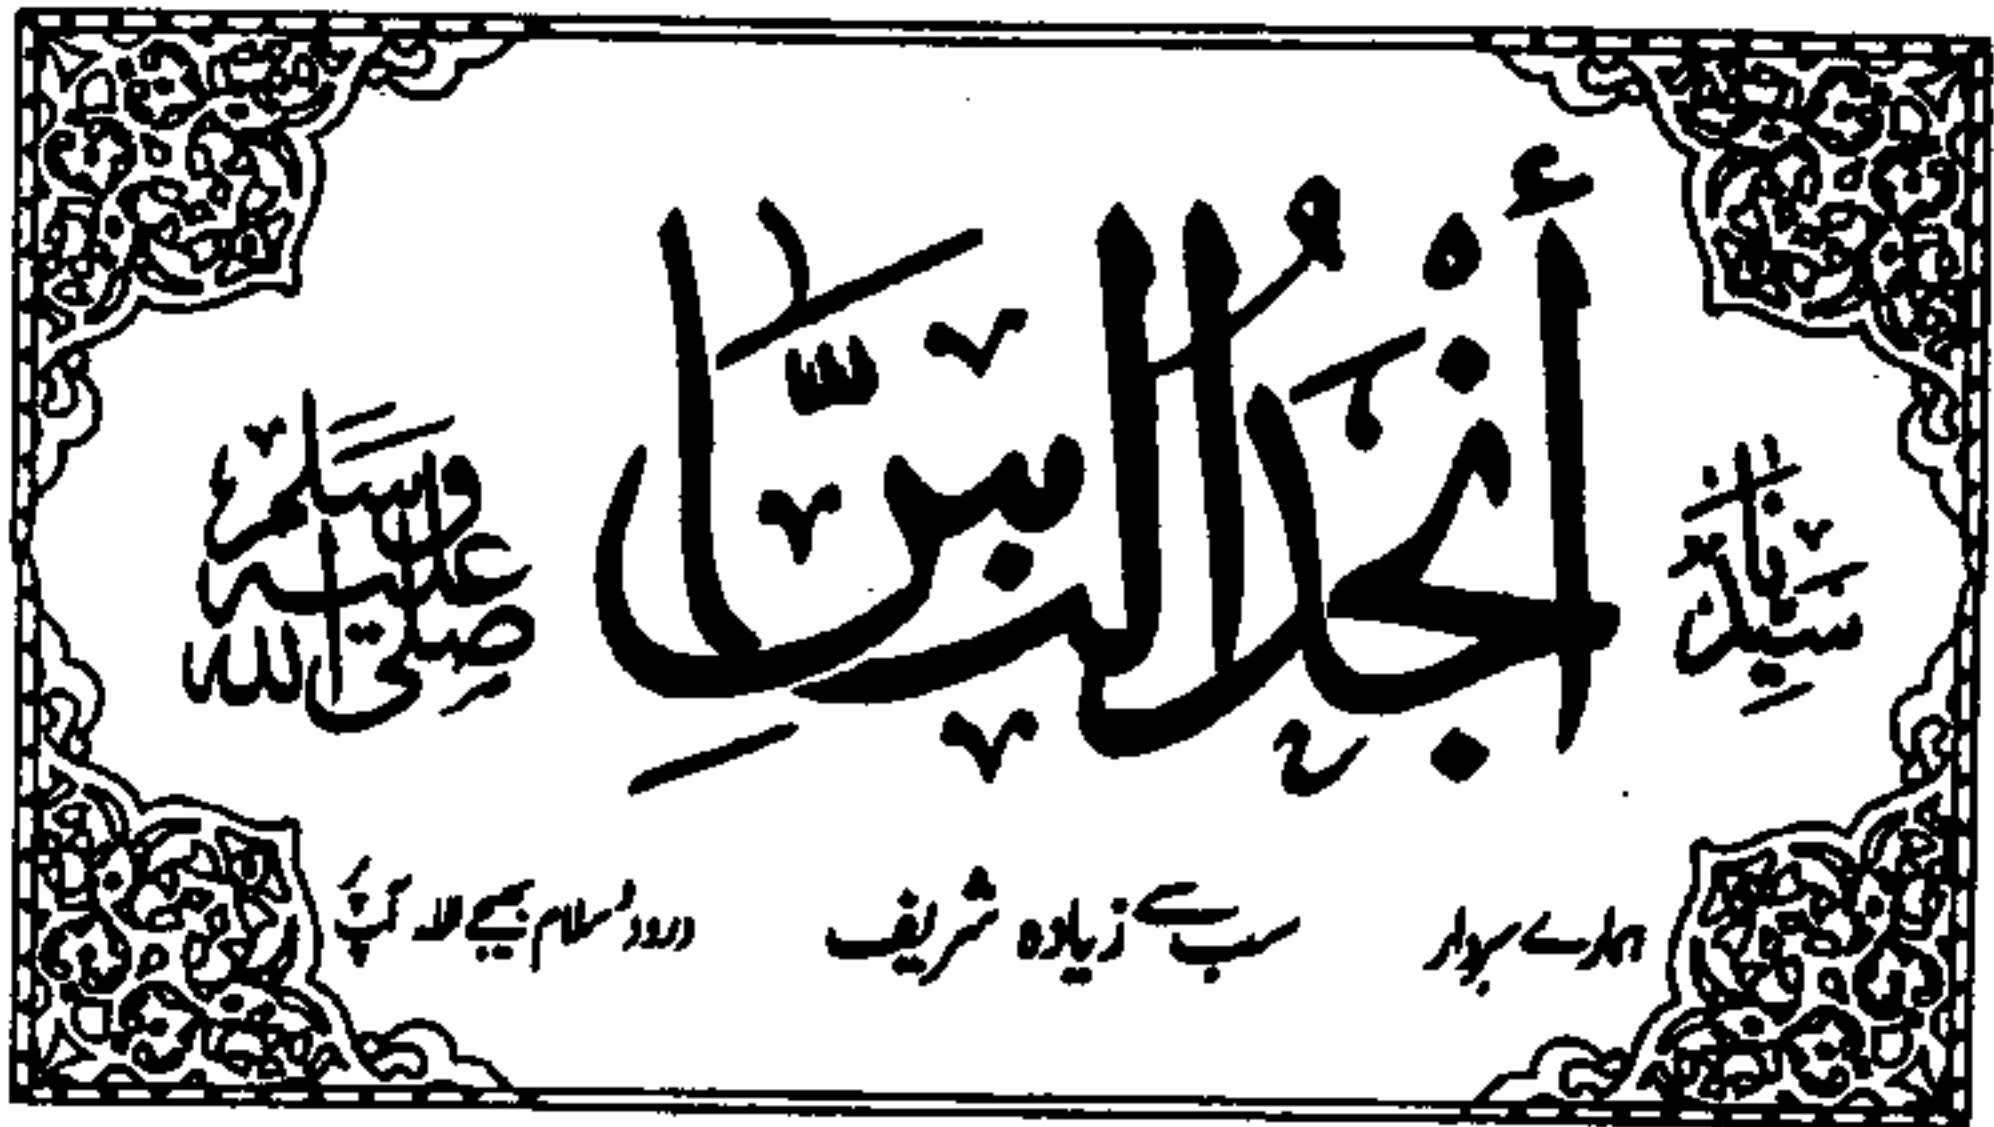 سَيِّدُنَا أَنْجَدُ النَّاسِ صَلَّى اللّٰه عَلَيْهِ وَسَلَّم
ہمارے سردار سب سے زیادہ شریف درود و سلام بھیجے اللہ آپ پر